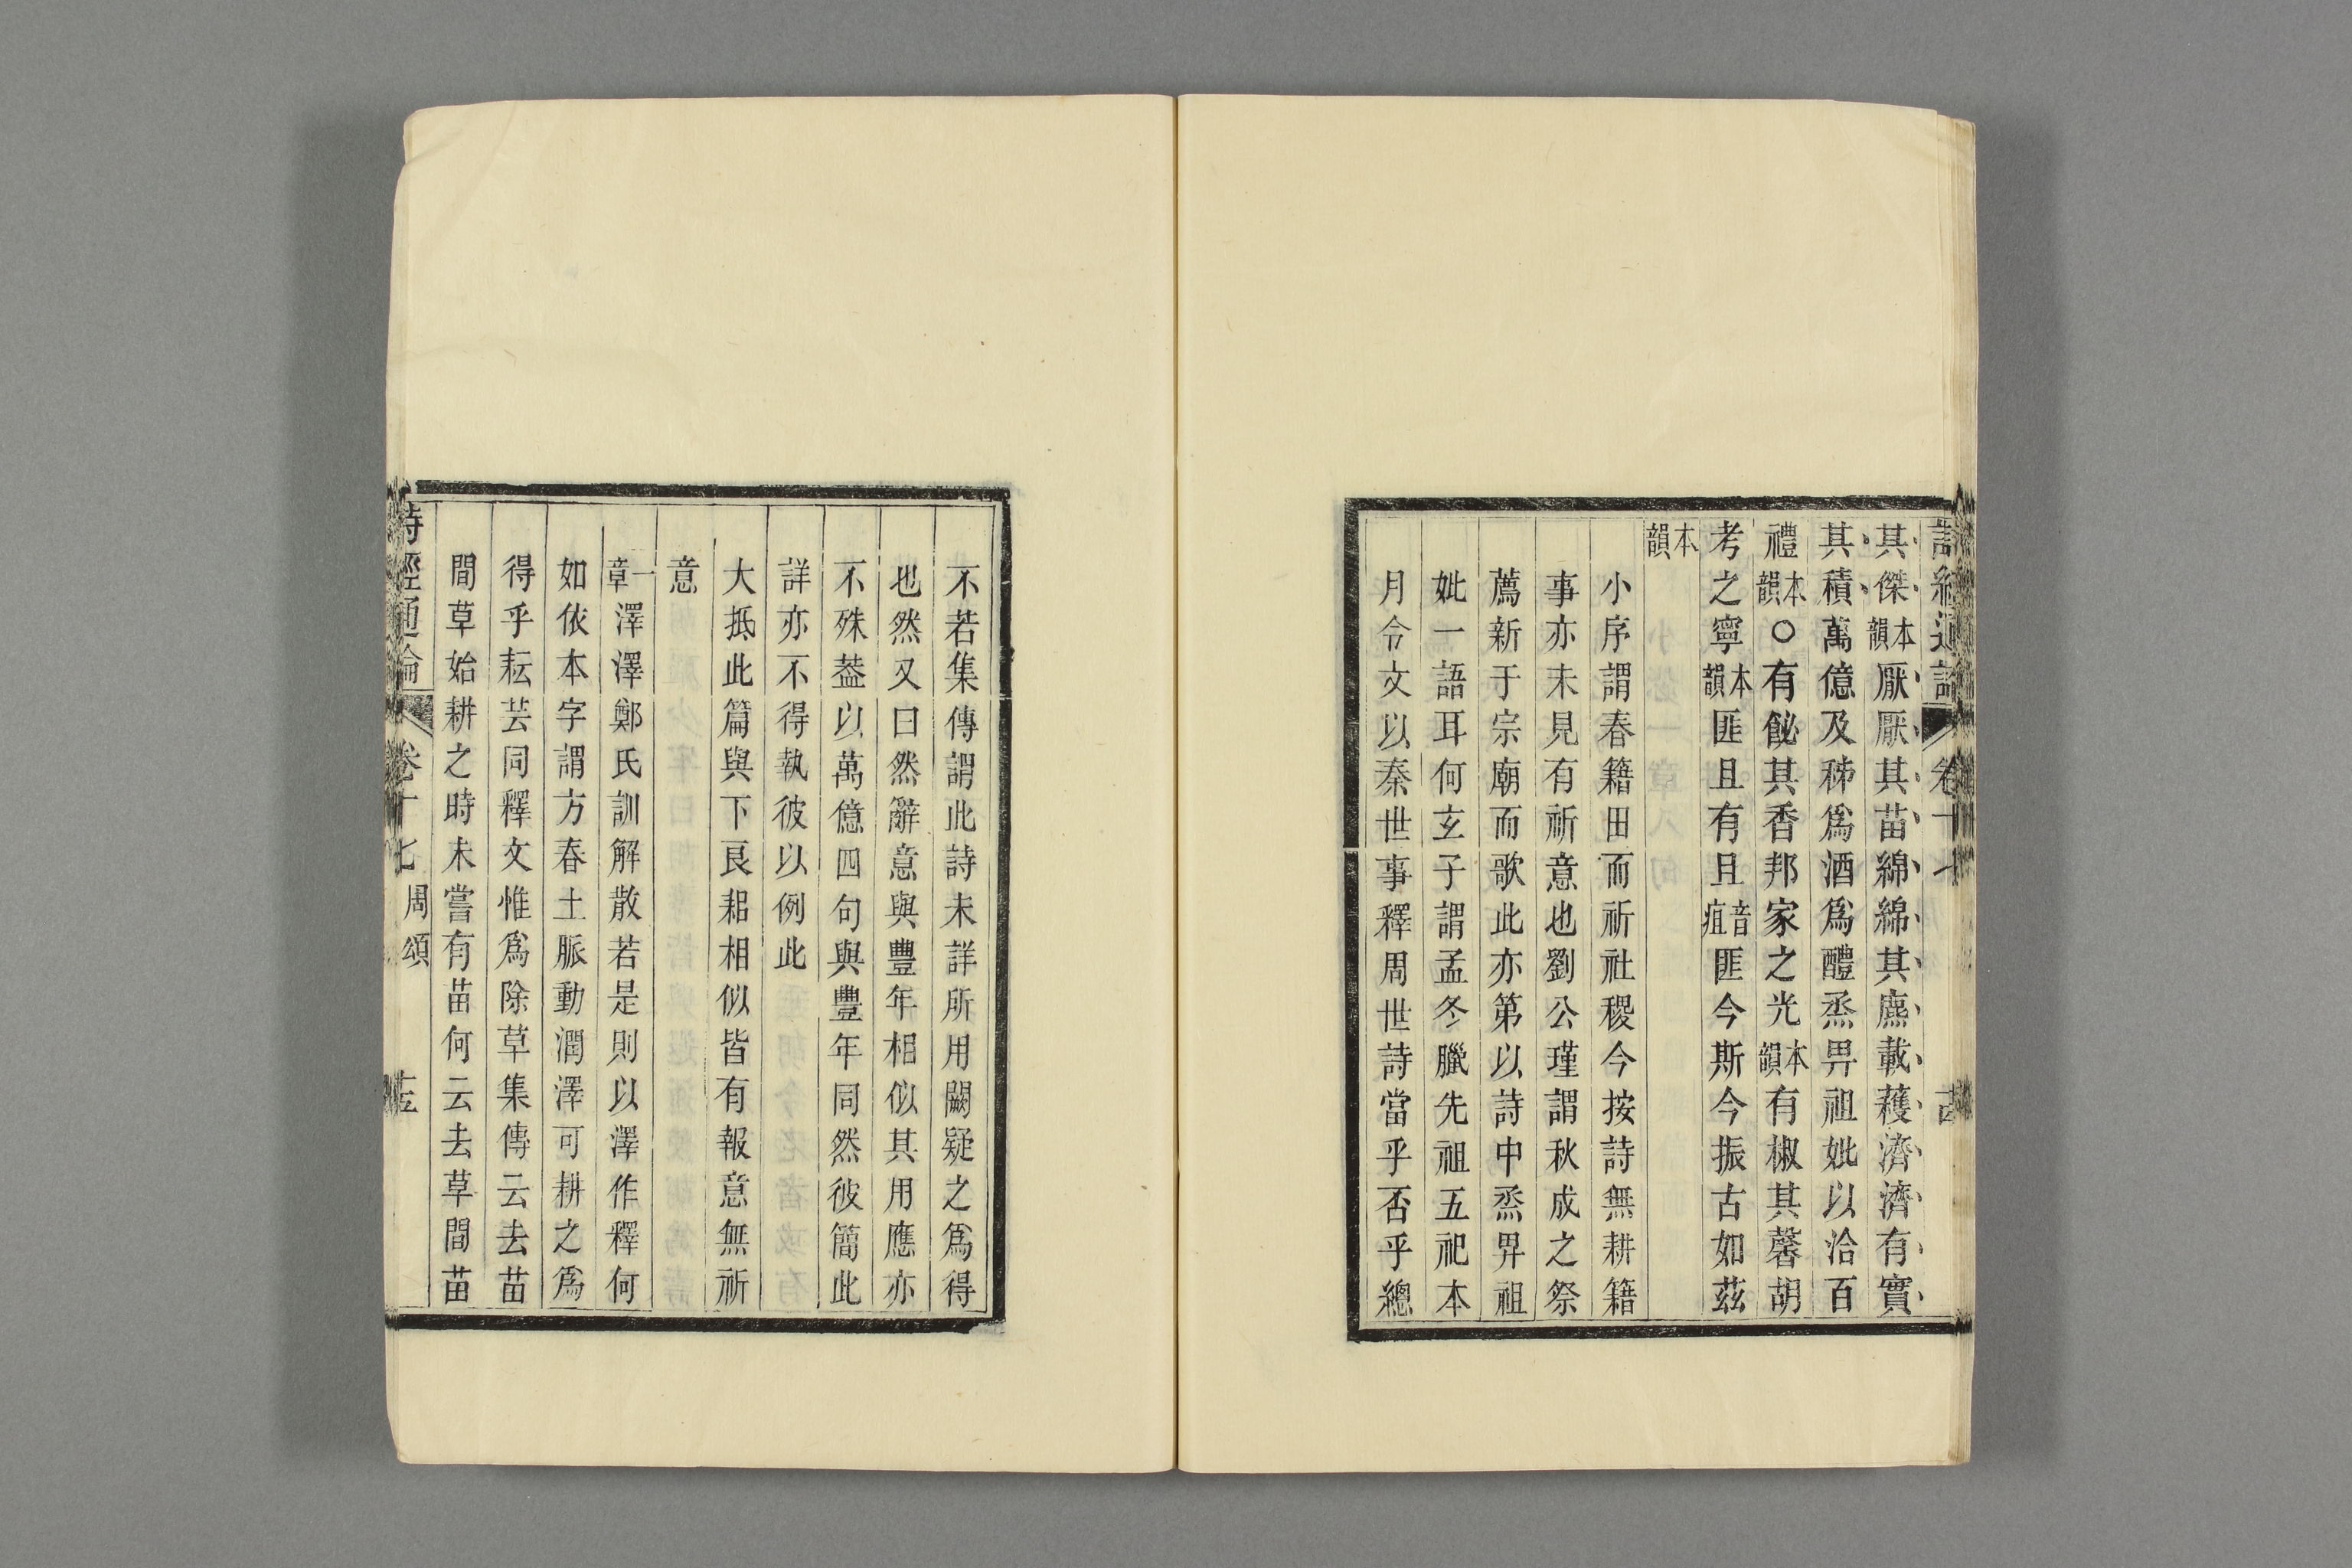 其傑本韻厭厭其苗綿綿其麃載穫濟濟有實
其積萬億及秭爲酒爲醴烝畀祖妣以洽百
禮本韻○有飶其香邦家之光本韻有椒其馨胡
考之寧本韻匪且有且音疽匪今斯今振古如茲
本韻
小序謂春籍田而祈社稷今按詩無耕籍
事亦未見有祈意也劉公瑾謂秋成之祭
薦新于宗廟而歌此亦第以詩中烝畀祖
妣一語耳何玄子謂孟冬臘先祖五祀本
月令文以秦世事釋周世詩當乎否乎總
不若集傳謂此詩未詳所用闕疑之爲得
也然又曰然辭意與豐年相似其用應亦
不殊葢以萬億四句與豐年同然彼簡此
詳亦不得執彼以例此
大抵此篇與下良耜相似皆有報意無祈
意
一章澤澤鄭氏訓解散若是則以澤作釋何
如依本字謂方春土脈動潤澤可耕之爲
得乎耘芸同釋文惟爲除草集傳云去苗
間草始耕之時未嘗有苗何云去草間苗
詩經通論 卷十七 周頌